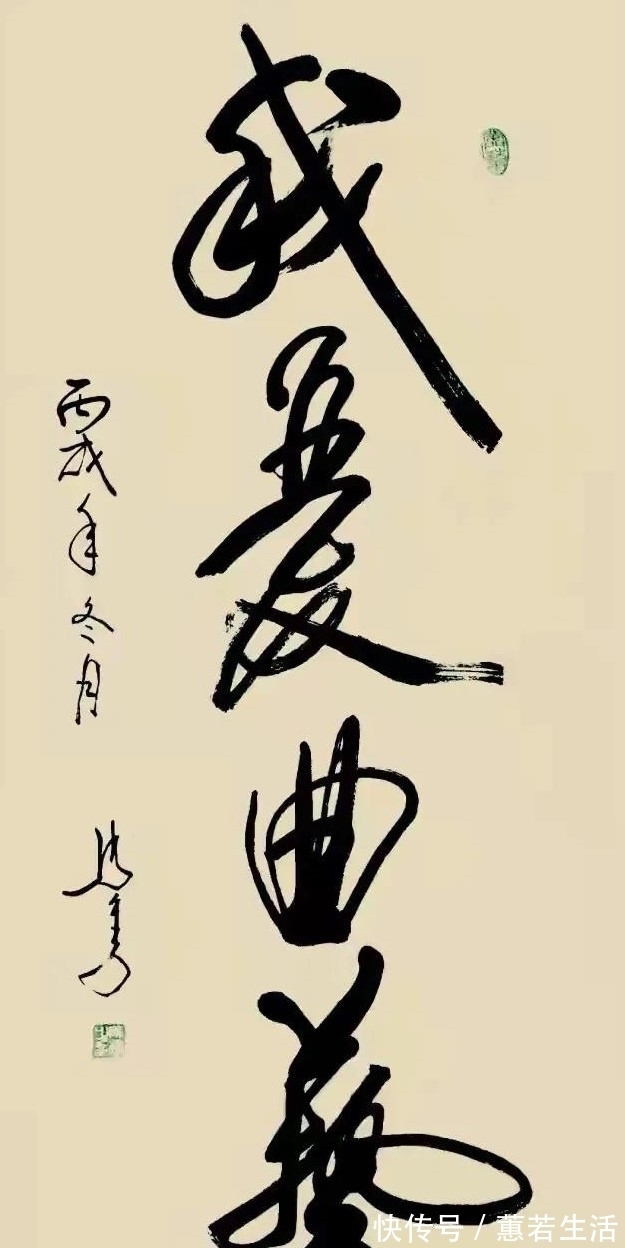 我愛曲藝
丙戌年冬月
快传号 / 蕙若生活